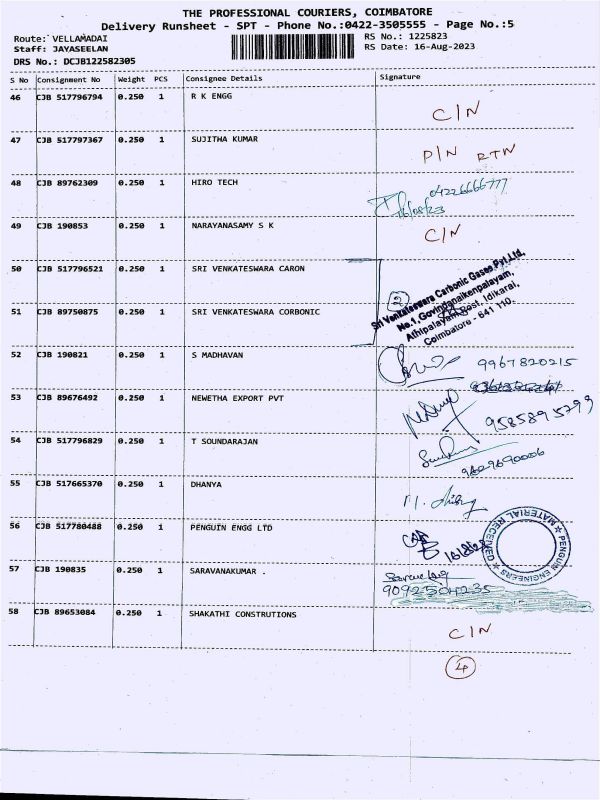 THE PROFESSIONAL COURIERS, COIMBATORE
Delivery Runsheet - SPT - Phone No.:0422-3505555 - Page No.:5
Route: VELLAMADAI
Staff: JAYASEELAN
DRS No.: DCJB122582305
RS No.: 1225823
RS Date: 16-Aug-2023
S No Consignment No Weight PCS Consignee Details Signature
46 CJB 517796794 0.250 1 R K ENGG C/N
47 CJB 517797367 0.250 1 SUJITHA KUMAR P/N RTN
48 CJB 89762309 0.250 1 HIRO TECH 04226666777
16/08/23
49 CJB 190853 0.250 1 NARAYANASAMY S K C/N
50 CJB 517796521 0.250 1 SRI VENKATESWARA CARON
51 CJB 89750875 0.250 1 SRI VENKATESWARA CORBONIC
Sri Venkateswara Carbonic Gases Pvt.Ltd,
No.1, Govindanaikenpalayam,
Athipalayam Post, Idikarai,
Coimbatore - 641 110.
52 CJB 190821 0.250 1 S MADHAVAN 9967820215
53 CJB 89676492 0.250 1 NEWETHA EXPORT PVT 9585895799
54 CJB 517796829 0.250 1 T SOUNDARAJAN
55 CJB 517665370 0.250 1 DHANYA
56 CJB 517780488 0.250 1 PENGUIN ENGG LTD
MATERIAL RECEIVED
PENGUIN ENGINEERS
57 CJB 190835 0.250 1 SARAVANAKUMAR .
9092504235
58 CJB 89653084 0.250 1 SHAKATHI CONSTRUTIONS C/N
4